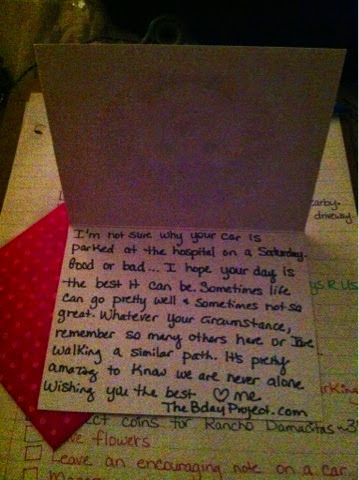 I'm not sure why your car is
parked at the hospital on a Saturday.
Good or bad... I hope your day is
the best it can be. Sometimes life
can go pretty well & sometimes not so
great. Whatever your circumstance,
remember so many others here or
walking a similar path. It's pretty
amazing to know we are never alone
Wishing you the best ♡ me.
TheBdayProject.com
earby.
driveway.
ys R US
arking
ect coins for Rancho Damacitas
ve flowers
Leave an encouraging note on a car